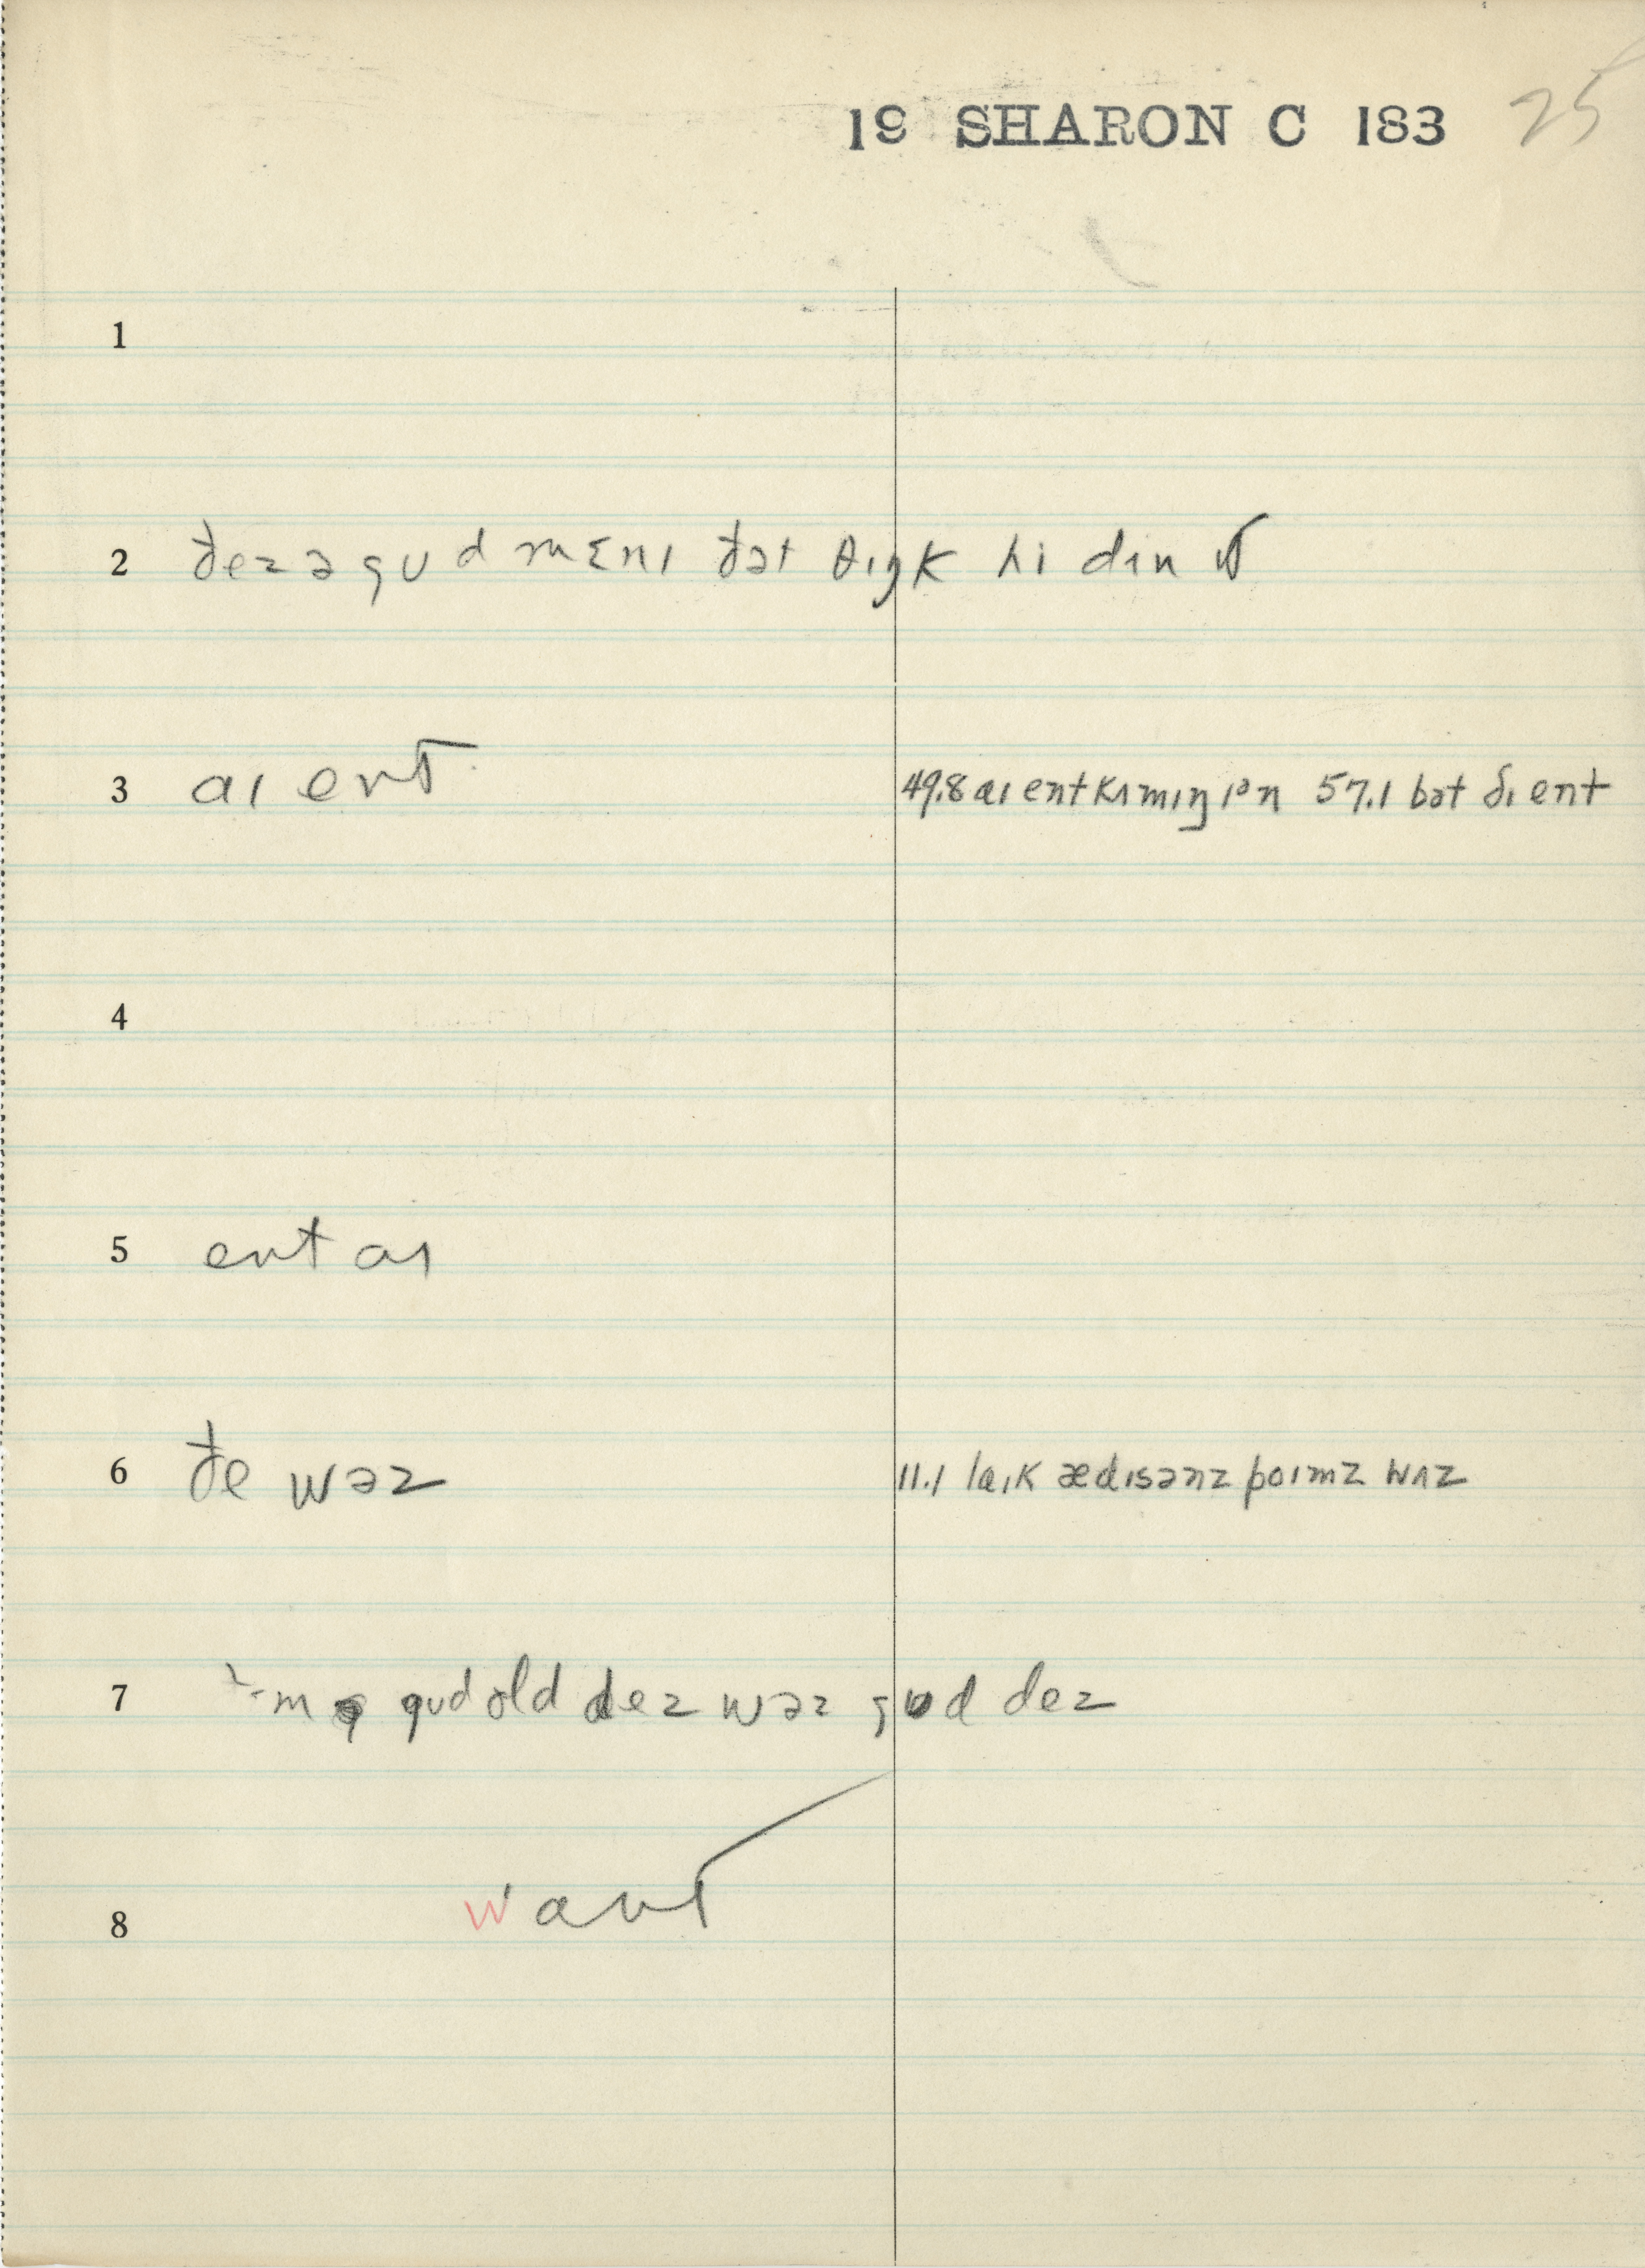 19 SHARON C 183 25
1
2 ðez ə gud mɛnɪ ðət θɪŋk hi dɪn
3 aɪ ent 49.8 aɪ ent kʌmɪŋ 57.1 bət ðɪ ent
4
5 ent aɪ
6 ðe wəz 11.1 laɪk ædɪsənz poɪmz wʌz
7 gud old dez wəz gud dez
8 want